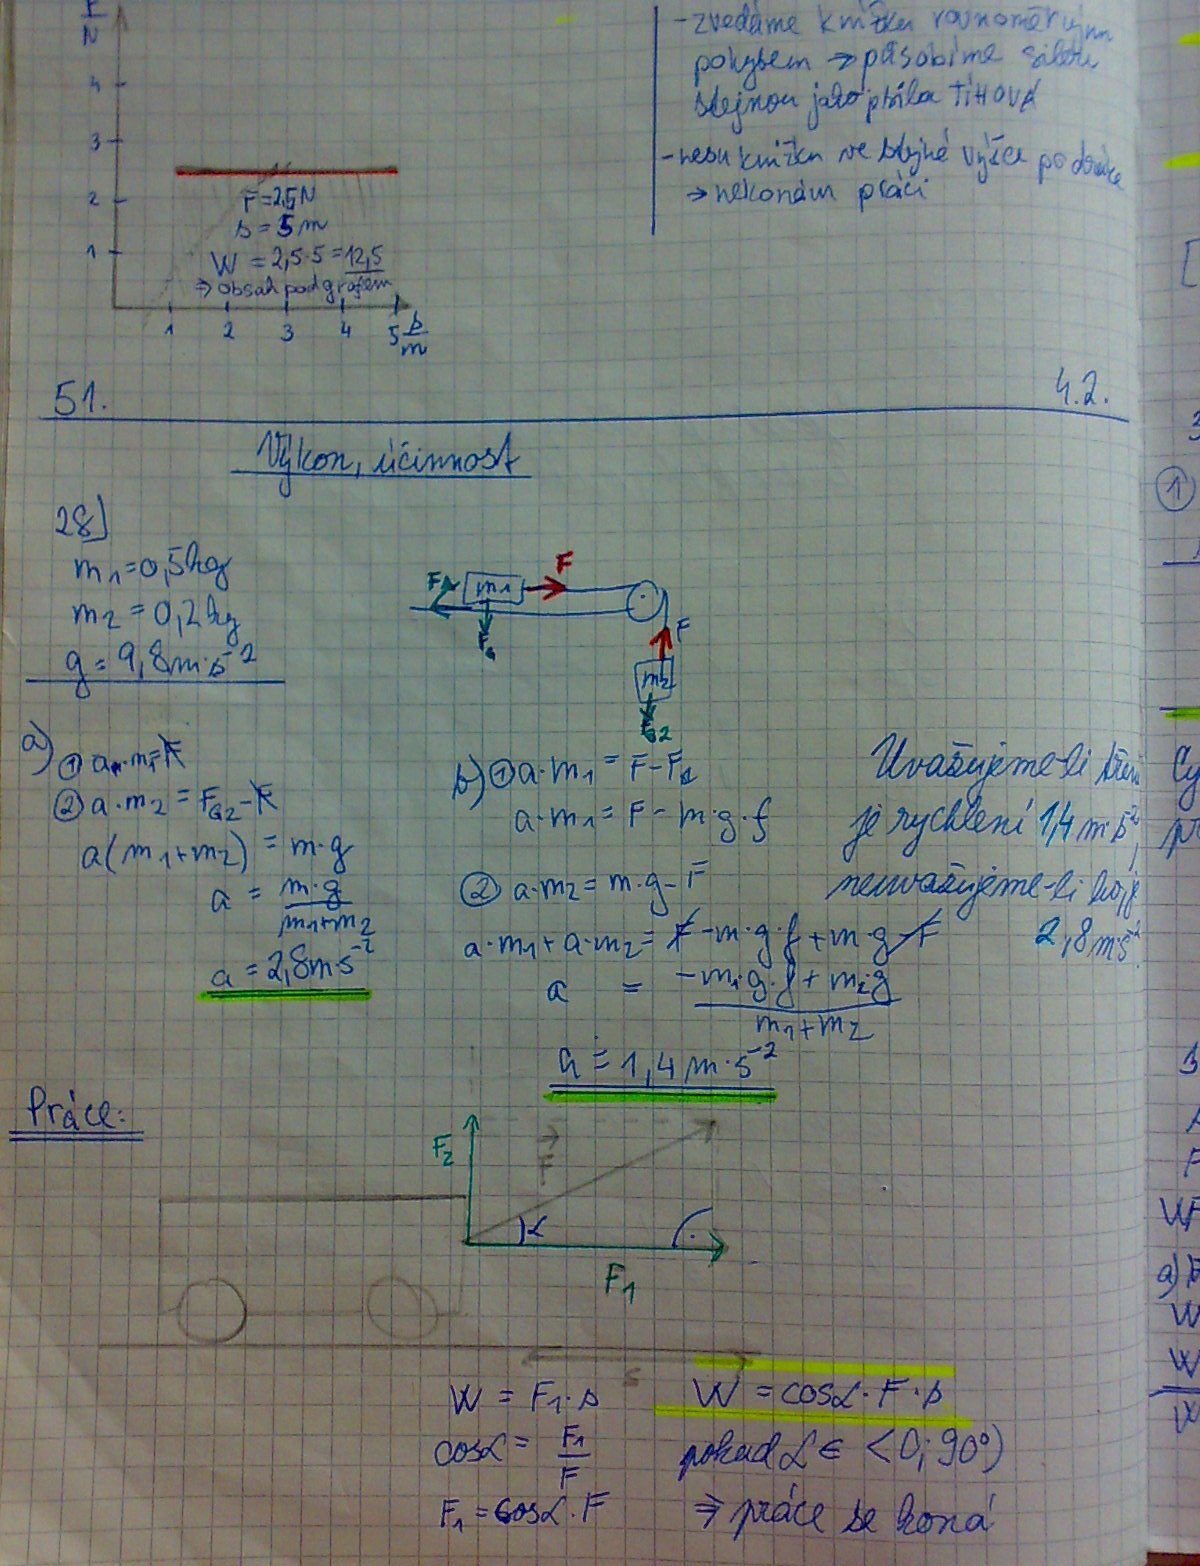 F/N
4
3
2
1
F=2,5N
s = 5m
W = 2,5·5=12,5
⇒ obsah pod grafem
1 2 3 4 5 s/m
- zvedáme knížku rovnoměrným
pohybem → působíme silou
stejnou jako
TÍHOVÁ
- nesu knížku ve stejné výšce po dráze
→ nekonám práci
51.
4.2.
Výkon, účinnost
28)
m1=0,5kg
m2=0,2kg
g=9,8m·s⁻²
m1
F
F
m2
FG2
a)
① a·m1=F
② a·m2=FG2-F
a(m1+m2)=m·g
a = m·g/m1+m2
a=2,8m·s⁻²
b) ① a·m1=F-Ft
a·m1=F-m·g·f
② a·m2=m·g-F
a·m1+a·m2=F-m·g·f+m·g-F
a = -m1·g·f+m2·g/m1+m2
a≐1,4m·s⁻²
Uvažujeme-li tření
je rychlení 1,4m·s⁻²,
neuvažujeme-li ho, je
2,8m·s⁻².
Práce:
F2
F
α
F1
s
W=F1·s
cosα=F1/F
F1=cosα·F
W=cosα·F·s
pokud α∈<0;90°)
⇒ práce se koná
①
a)
W
W